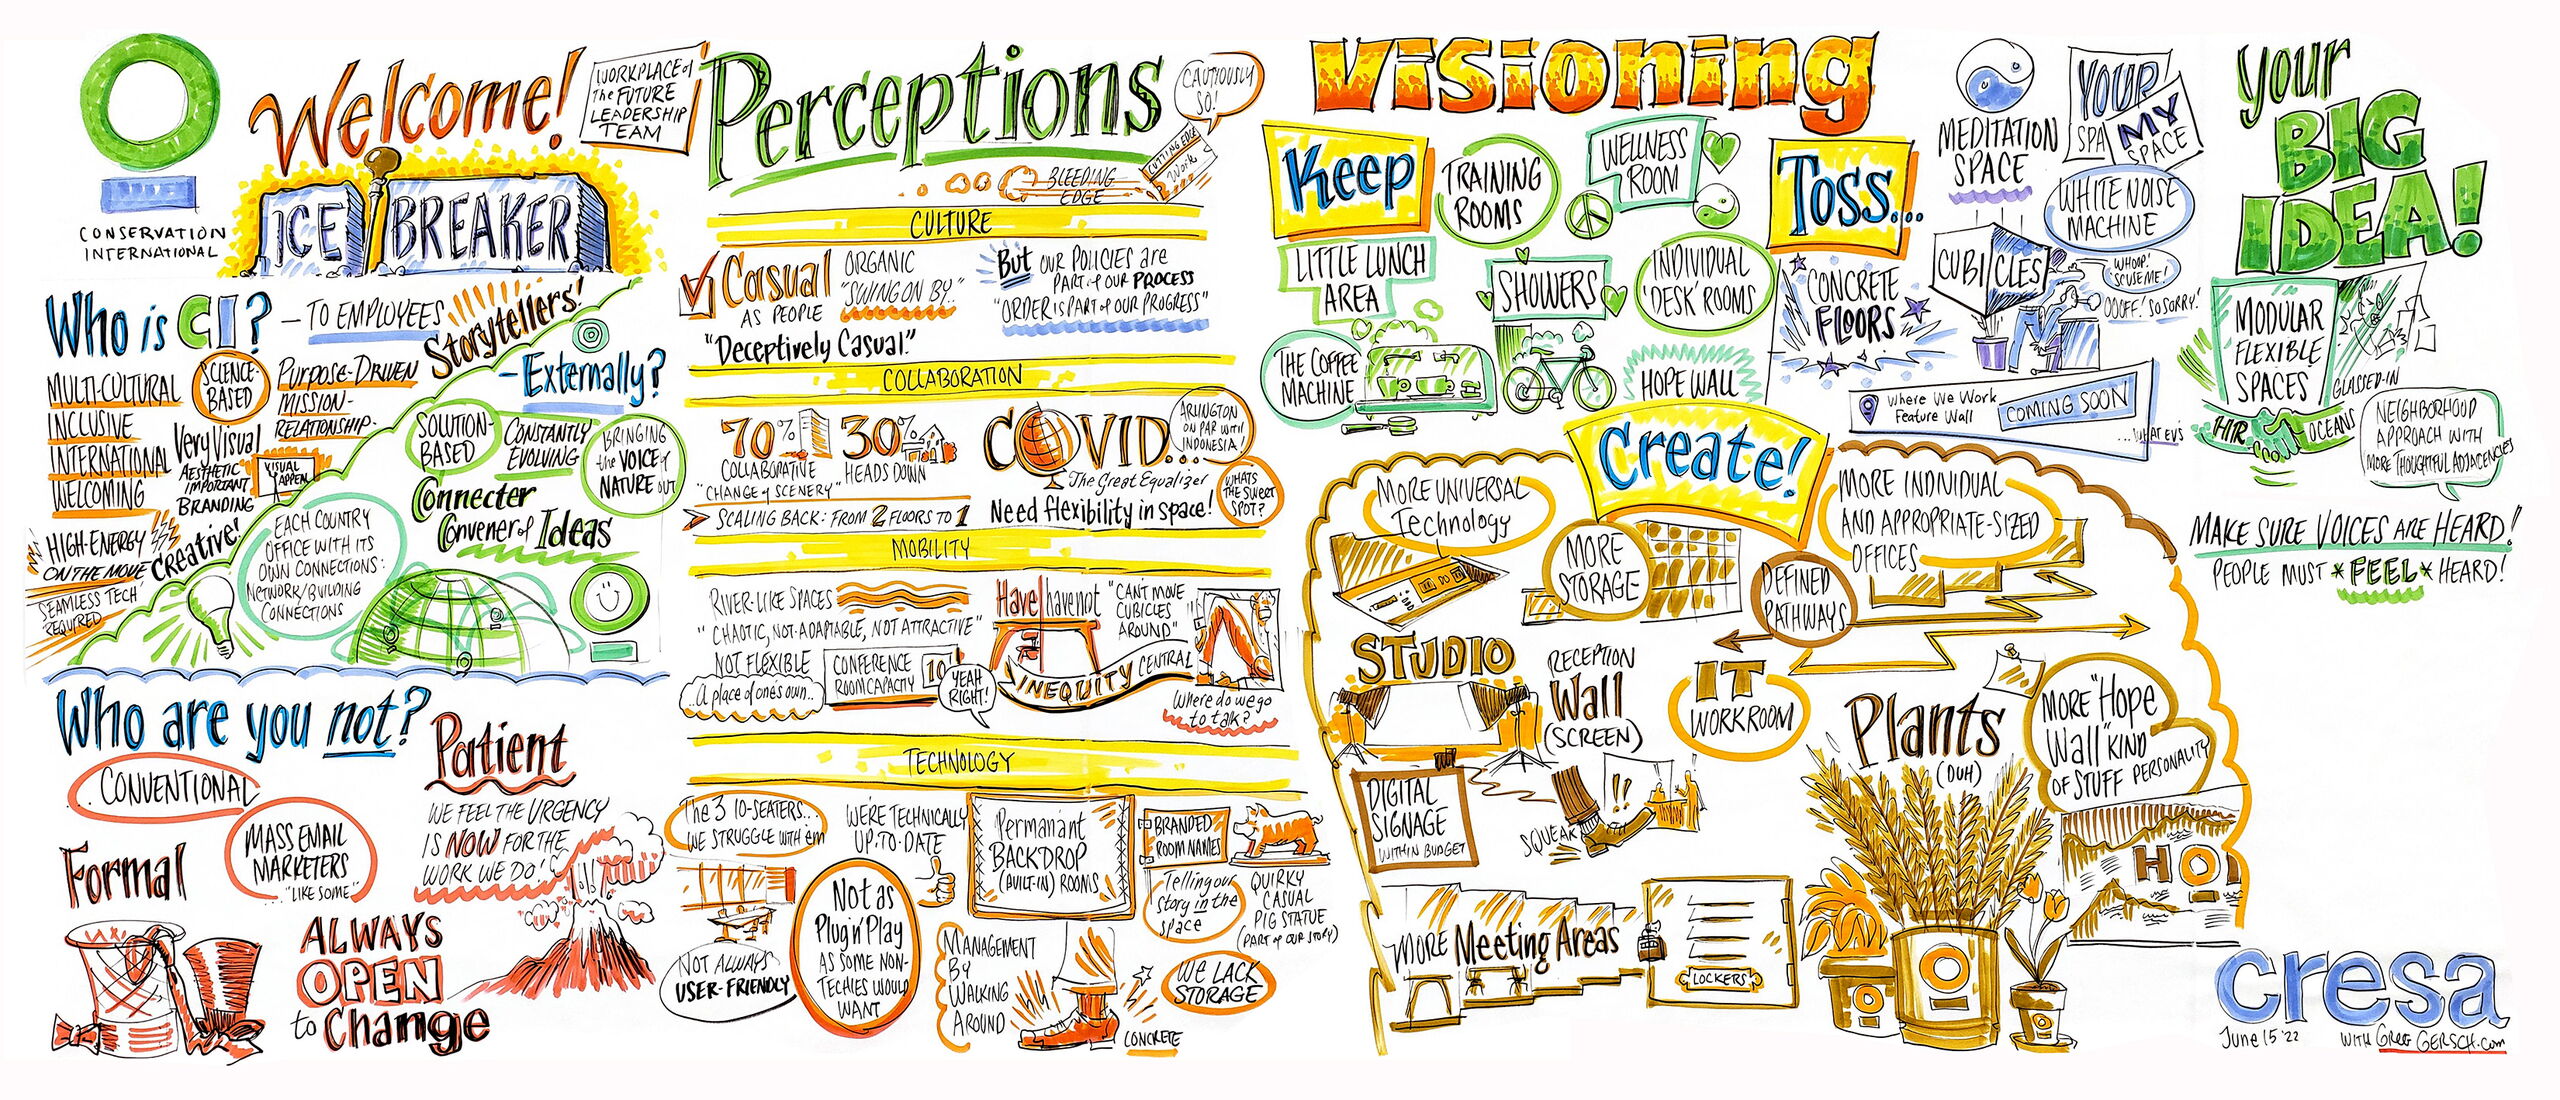 CONSERVATION
INTERNATIONAL
Welcome!
WORKPLACE of
the FUTURE
LEADERSHIP
TEAM
ICE BREAKER
Who is CI?
- TO EMPLOYEES
Storytellers!
MULTI-CULTURAL
INCLUSIVE
INTERNATIONAL
WELCOMING
SCIENCE-
BASED
Purpose-Driven
MISSION-
RELATIONSHIP-
Very Visual
AESTHETIC
IMPORTANT
BRANDING
VISUAL
APPEAL
HIGH-ENERGY
ON THE MOVE
Creative!
SEAMLESS TECH
REQUIRED
- Externally?
SOLUTION-
BASED
CONSTANTLY
EVOLVING
BRINGING
the VOICE of
NATURE out
Connecter
Convener of Ideas
EACH COUNTRY
OFFICE WITH ITS
OWN CONNECTIONS:
NETWORK/BUILDING
CONNECTIONS
Who are you not?
... CONVENTIONAL
Patient
WE FEEL THE URGENCY
IS NOW FOR THE
WORK WE DO!
Formal
MASS EMAIL
MARKETERS
..."LIKE SOME"
ALWAYS
OPEN
to Change
Perceptions
CAUTIOUSLY
SO!
CUTTING EDGE
Work
BLEEDING
EDGE
CULTURE
Casual
AS PEOPLE
ORGANIC
"SWING ON BY.."
"Deceptively Casual."
But OUR POLICIES are
PART of OUR PROCESS
"ORDER IS PART of OUR PROGRESS"
COLLABORATION
70%
COLLABORATIVE
"CHANGE of SCENERY"
30%
HEADS DOWN
SCALING BACK: FROM 2 FLOORS TO 1
COVID...
The Great Equalizer
Need flexibility in space!
ARLINGTON
ON PAR WITH
INDONESIA!
WHATS
THE SWEET
SPOT?
MOBILITY
RIVER-LIKE SPACES
"CHAOTIC, NOT-ADAPTABLE, NOT ATTRACTIVE"
NOT FLEXIBLE
..A place of one's own...
CONFERENCE
ROOM CAPACITY
10
YEAH
RIGHT!
Have have not
"CAN'T MOVE
CUBICLES
AROUND"
INEQUITY CENTRAL
Where do we go
to talk?
TECHNOLOGY
The 3 10-SEATERS...
WE STRUGGLE WITH em
NOT ALWAYS
USER-FRIENDLY
WE'RE TECHNICALLY
UP-TO-DATE
Not as
Plug n' Play
AS SOME NON-
TECHIES WOULD
WANT
Permanant
BACKDROP
(BUILT-IN) ROOMS
MANAGEMENT
BY
WALKING
AROUND
CONCRETE
BRANDED
ROOM NAMES
Telling our
story in the
space
QUIRKY
CASUAL
PIG STATUE
(PART of OUR STORY)
WE LACK
STORAGE
Visioning
Keep
TRAINING
ROOMS
WELLNESS
ROOM
LITTLE LUNCH
AREA
SHOWERS
INDIVIDUAL
'DESK' ROOMS
THE COFFEE
MACHINE
HOPE WALL
Toss...
CONCRETE
FLOORS
MEDITATION
SPACE
YOUR
SPA
MY
SPACE
WHITE NOISE
MACHINE
CUBICLES
WHOOP!
'SCUSE ME!
OOOFF! SO SORRY!
Where We Work
Feature Wall
COMING SOON
Create!
MORE UNIVERSAL
Technology
MORE
STORAGE
MORE INDIVIDUAL
AND APPROPRIATE-SIZED
OFFICES
DEFINED
PATHWAYS
STUDIO
RECEPTION
Wall
(SCREEN)
IT
WORKROOM
DIGITAL
SIGNAGE
WITHIN BUDGET
SQUEAK
!!
Plants
(DUH)
MORE "HOPE
Wall" KIND
OF STUFF PERSONALITY
HO
MORE Meeting Areas
LOCKERS
your
BIG
IDEA!
MODULAR
FLEXIBLE
SPACES
GLASSED-IN
HIR
OCEANS
NEIGHBORHOOD
APPROACH WITH
MORE THOUGHTFUL ADJACENCIES
MAKE SURE VOICES ARE HEARD!
PEOPLE MUST *FEEL* HEARD!
cresa
June 15 '22
WITH GREG GERSCH.com